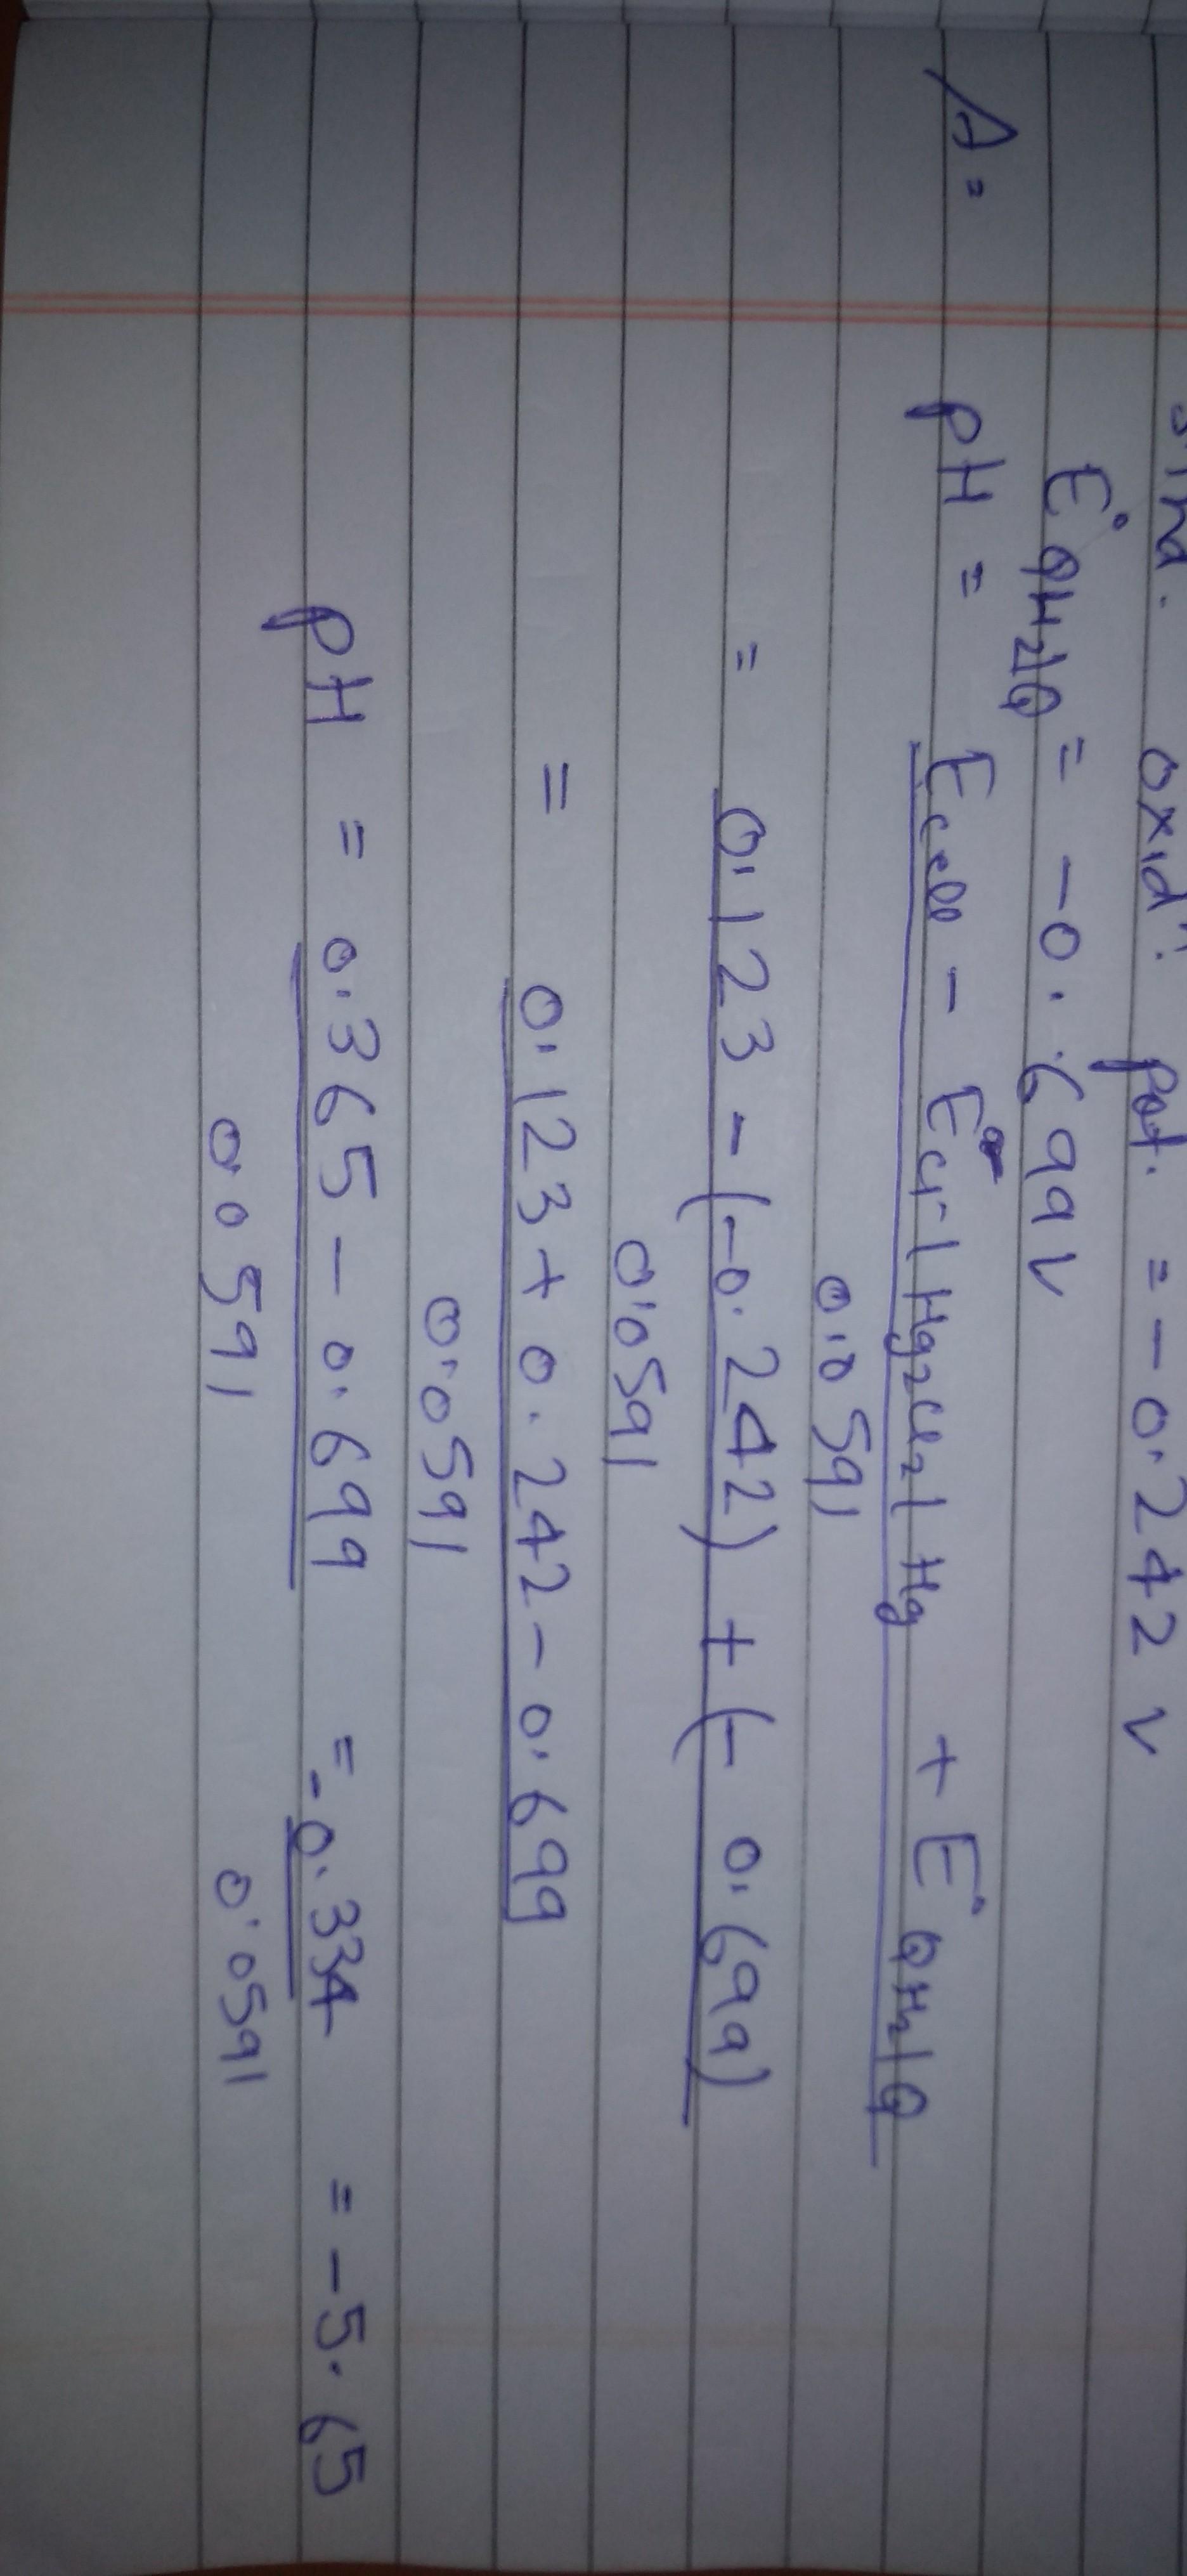 oxidⁿ. pot. = -0.242 V
E° QH₂|Q = -0.699 V
A = pH = Ecell - E° Cl⁻|Hg₂Cl₂|Hg + E° QH₂|Q
0.0591
= 0.123 - (-0.242) + (-0.699)
0.0591
= 0.123 + 0.242 - 0.699
0.0591
pH = 0.365 - 0.699 = -0.334 = -5.65
0.0591 0.0591